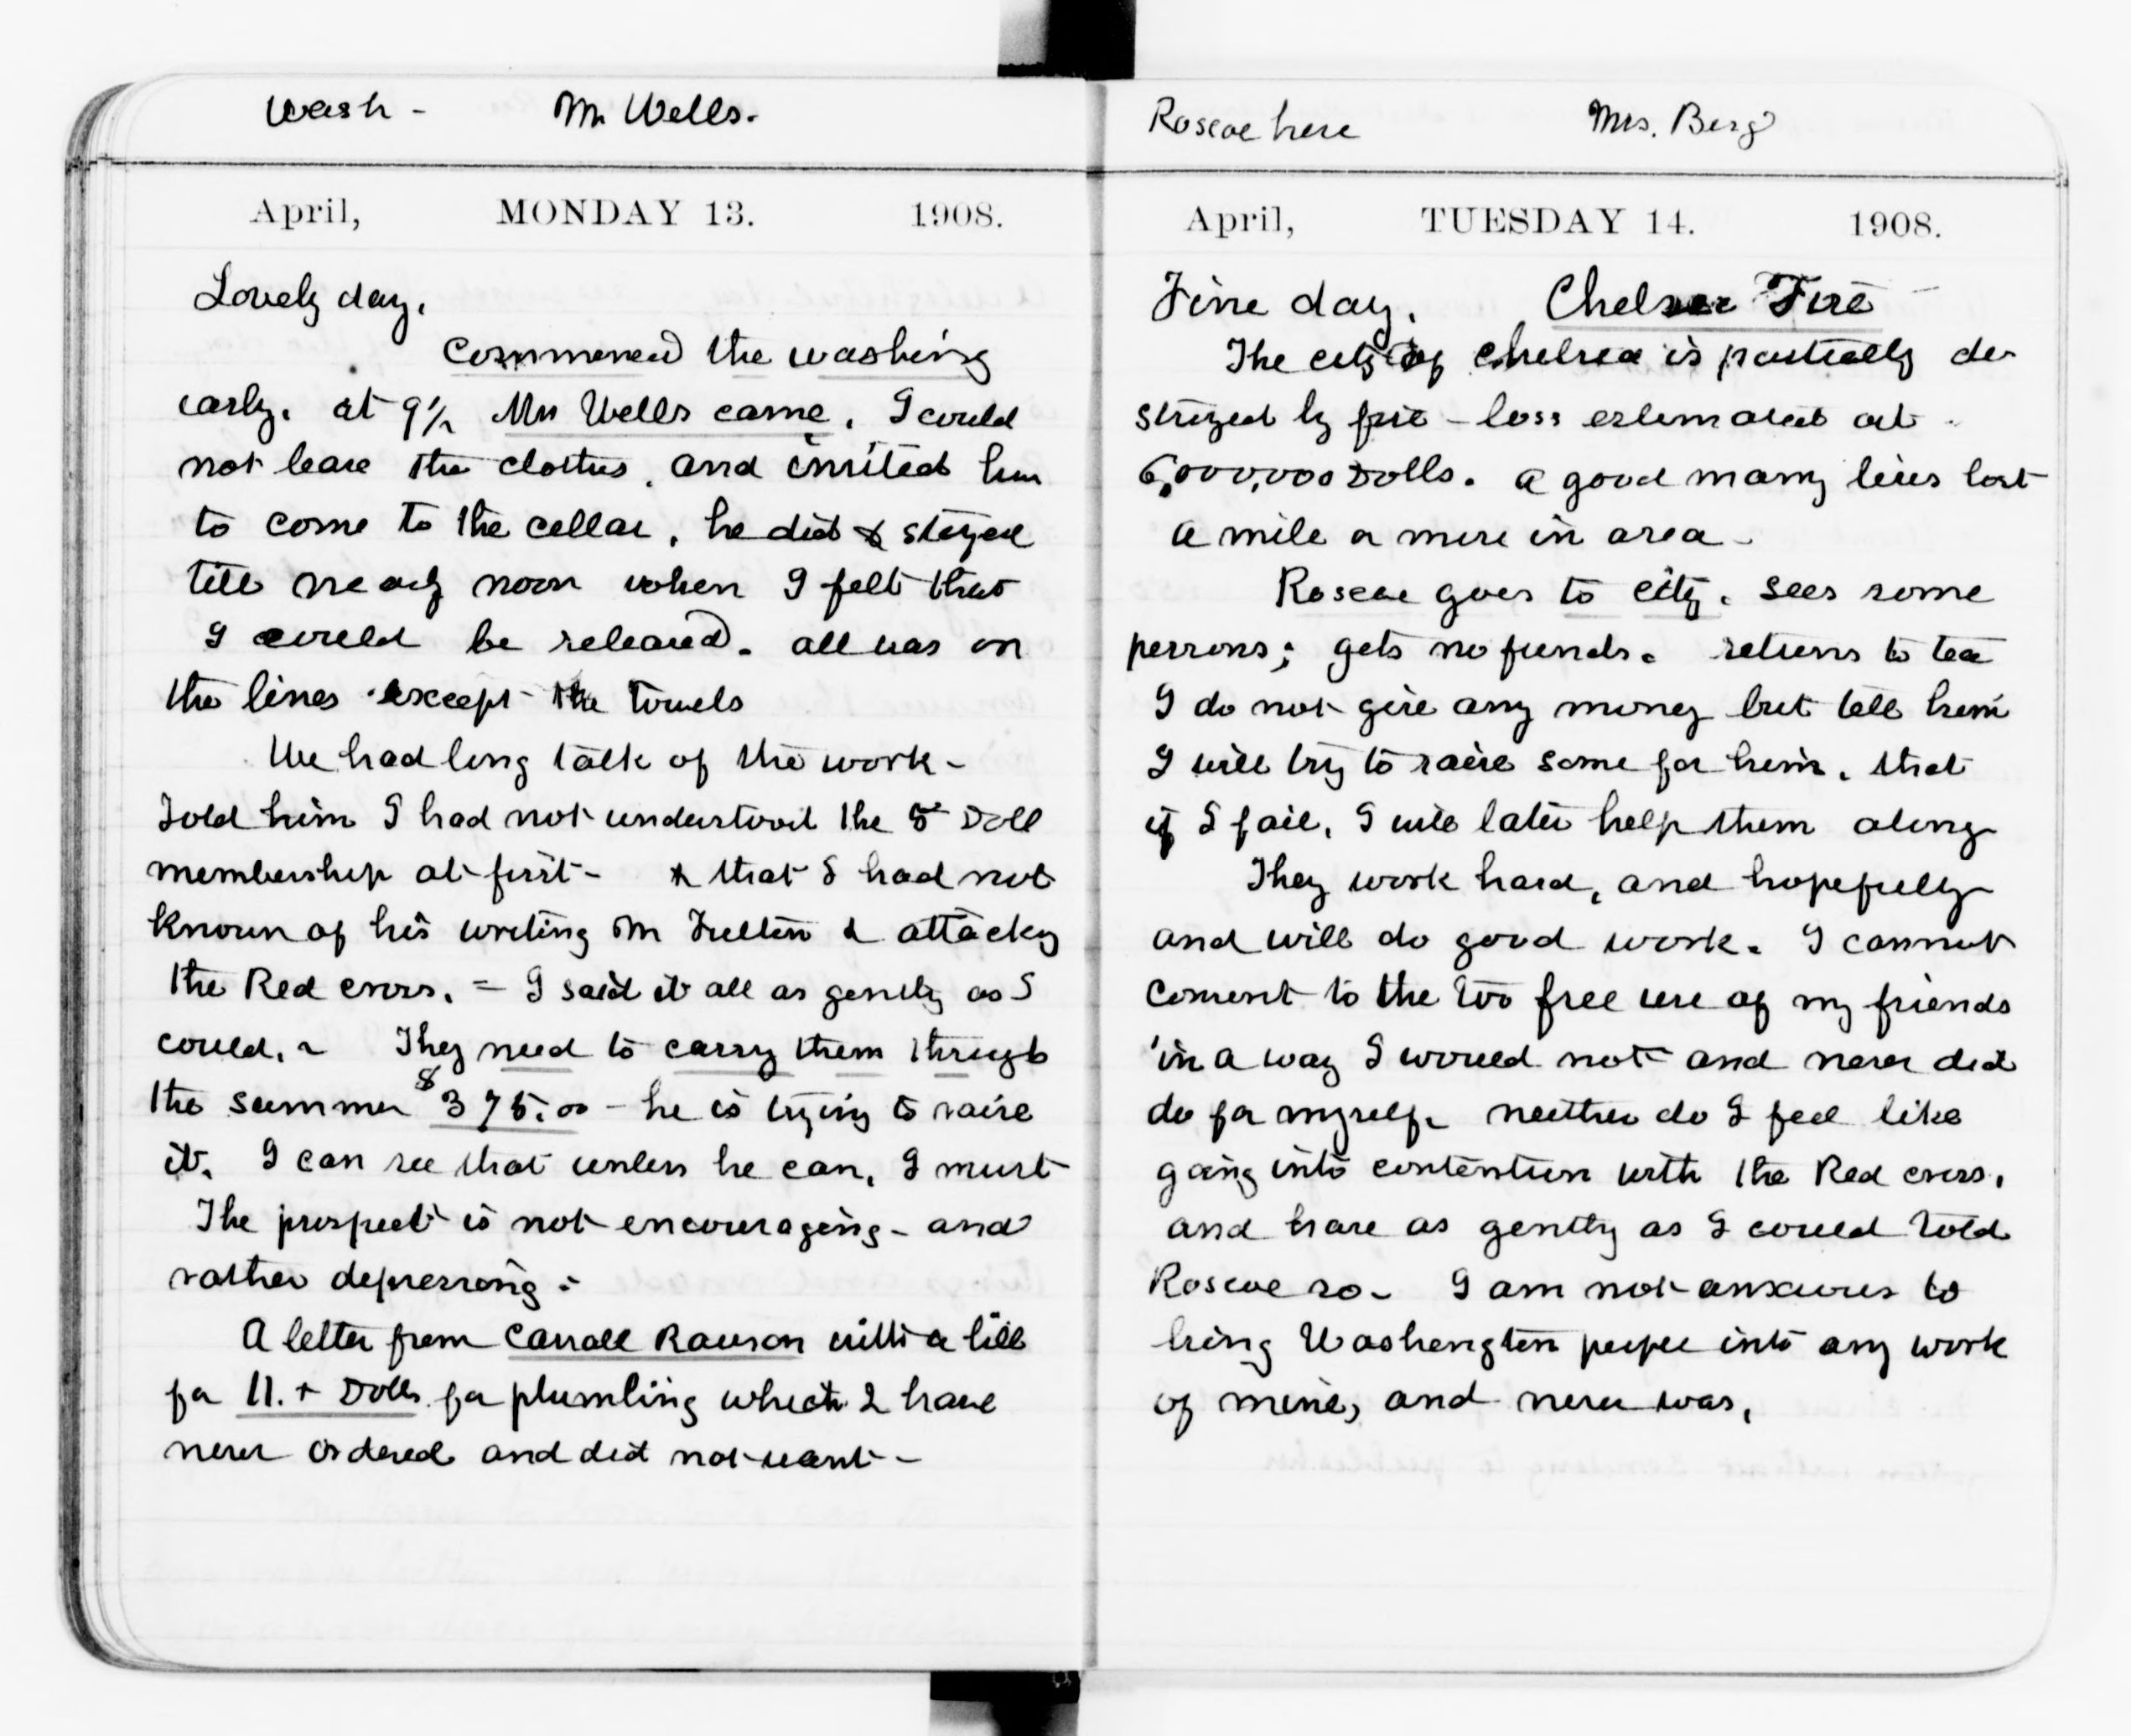 Wash - Mr Wells.
April, MONDAY 13. 1908.
Lovely day.
Commenced the washing
early. at 9½ Mr Wells came. I could
not leave the clothes, and invited him
to come to the cellar, he did & stayed
till nearly noon when I felt that
I could be released. all was on
the lines except the towels
We had long talk of the work -
Told him I had not understood the 5 Doll
membership at first - & that I had not
known of his writing Mr Fulton & attackg
the Red cross. = I said it all as gently as I
could. ~ They need to carry them through
the summer $375.00 - he is trying to raise
it. I can see that unless he can, I must
The prospect is not encouraging - and
rather depressing -
A letter from Carroll Rawson with a bill
for 11.+ Dolls for plumbing which I have
never ordered and did not want -
Roscoe here Mrs. Berg
April, TUESDAY 14. 1908.
Fine day. Chelsea Fire
The city of Chelsea is partially de-
stroyed by fire - loss estimated at
6,000,000 Dolls. a good many lives lost
a mile or more in area -
Roscoe goes to city. sees some
persons; gets no funds. returns to tea
I do not give any money but tell him
I will try to raise some for him. that
if I fail, I will later help them along
They work hard, and hopefully
and will do good work. I cannot
consent to the too free use of my friends
in a way I would not and never did
do for myself. neither do I feel like
going into contention with the Red cross.
and have as gently as I could told
Roscoe so - I am not anxious to
bring Washington people into any work
of mine, and never was.